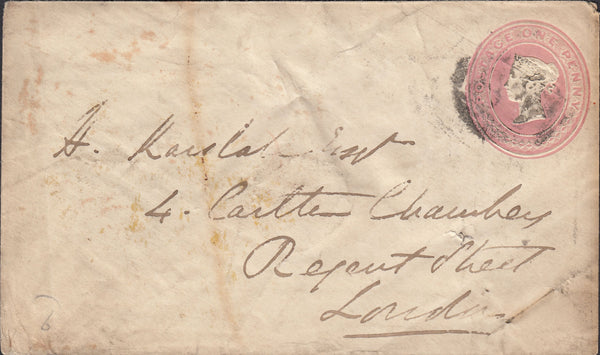 POSTAGE ONE PENNY
H. Karslake Esqr
4. Carlton Chambers
Regent Street
London